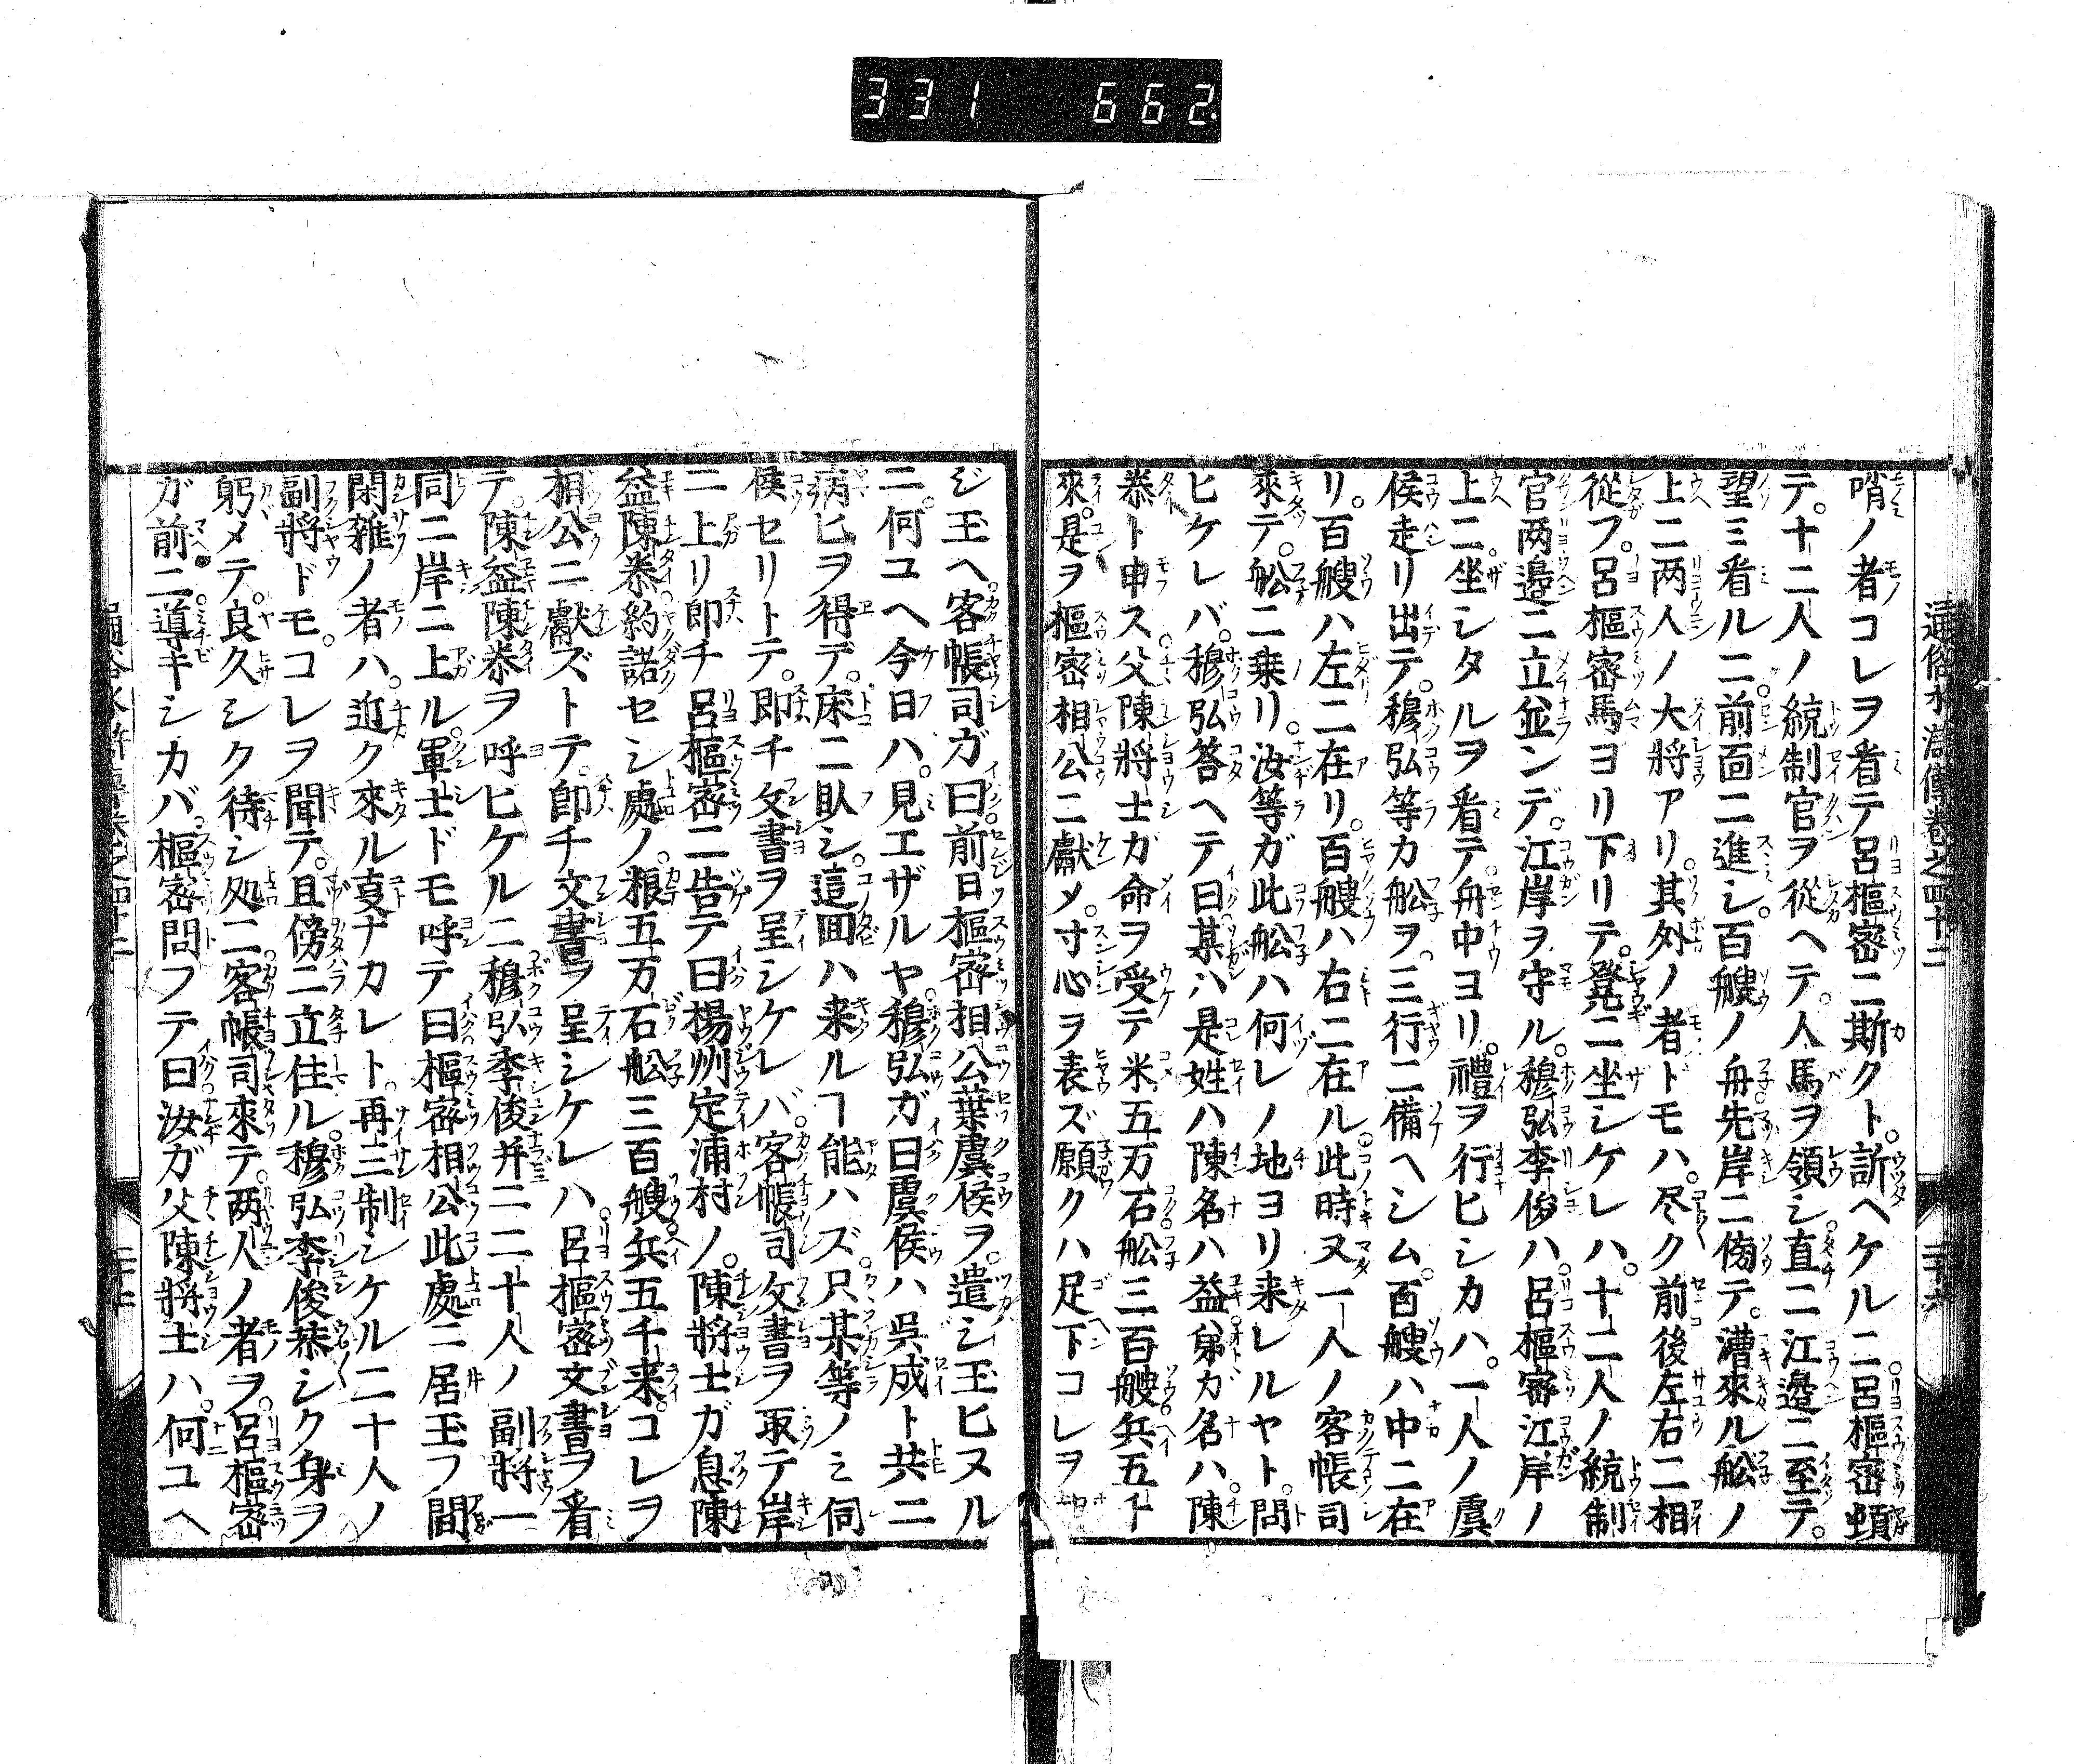 331 662
通俗水滸傳卷之四十二
二十六
哨ノ者コレヲ看テ呂樞密ニ斯クト。訴ヘケルニ呂樞密頓
テ。十二人ノ統制官ヲ從ヘテ。人馬ヲ領シ。直ニ江邊ニ至テ。
望ミ看ルニ前面ニ進シ。百艘ノ舟先岸ニ傍テ。漕來ル舩ノ
上ニ两人ノ大將アリ。其外ノ者トモハ。尽ク前後左右ニ相
從フ。呂樞密馬ヨリ下リテ。凳ニ坐シケレハ。十二人ノ統制
官两邉ニ立並ンデ。江岸ヲ守ル。穆弘李俊ハ。呂樞密江岸ノ
上ニ。坐シタルヲ看テ。舟中ヨリ。禮ヲ行ヒシカハ。一人ノ虞
候走リ出テ。穆弘等カ舩ヲ。三行ニ備ヘシム。百艘ハ中ニ在
リ。百艘ハ左ニ在リ。百艘ハ右ニ在ル。此時又一人ノ客帳司
來テ。舩ニ乗リ。汝等ガ此舩ハ何レノ地ヨリ来レルヤト。問
ヒケレバ。穆弘答ヘテ曰某ハ是姓ハ陳名ハ益。弟ガ名ハ。陳
泰ト申ス。父陳將士カ命ヲ受テ米五万石舩三百艘兵五千
來。是ヲ樞密相公ニ獻メ。寸心ヲ表ズ願クハ足下コレヲ
ジ玉ヘ。客帳司ガ曰。前日樞密相公葉虞侯ヲ。遣シ玉ヒヌル
ニ。何ユヘ今日ハ。見エザルヤ穆弘ガ曰虞侯ハ呉成ト共ニ
病ヒヲ得デ。床ニ臥シ。這囬ハ来ルヿ能ハズ。只某等ノミ伺
候セリトテ。即チ文書ヲ呈シケレバ。客帳司文書ヲ取テ岸
ニ上リ即チ呂樞密ニ告テ曰揚州定浦村ノ。陳將士ガ息陳
益陳泰約諾セシ處ノ。粮五万石舩三百艘兵五千来。コレヲ
相公ニ獻ズトテ。即チ文書ヲ呈シケレハ。呂樞密文書ヲ看
テ。陳益陳泰ヲ呼ヒケルニ穆弘李俊并ニ二十人ノ副將一
同ニ岸ニ上ル。軍士ドモ呼テ曰樞密相公此處ニ居玉フ間
閑雑ノ者ハ。近ク來ル叓ナカレト。再三制シケルニ十人ノ
副將ドモ。コレヲ聞テ。且傍ニ立住ル。穆弘李俊恭シク身ヲ
躬メテ。良久シク待シ処ニ客帳司來テ。两人ノ者ヲ。呂樞密
ガ前ニ導キシカバ。樞密問フテ曰汝ガ父陳將士ハ。何ユヘ